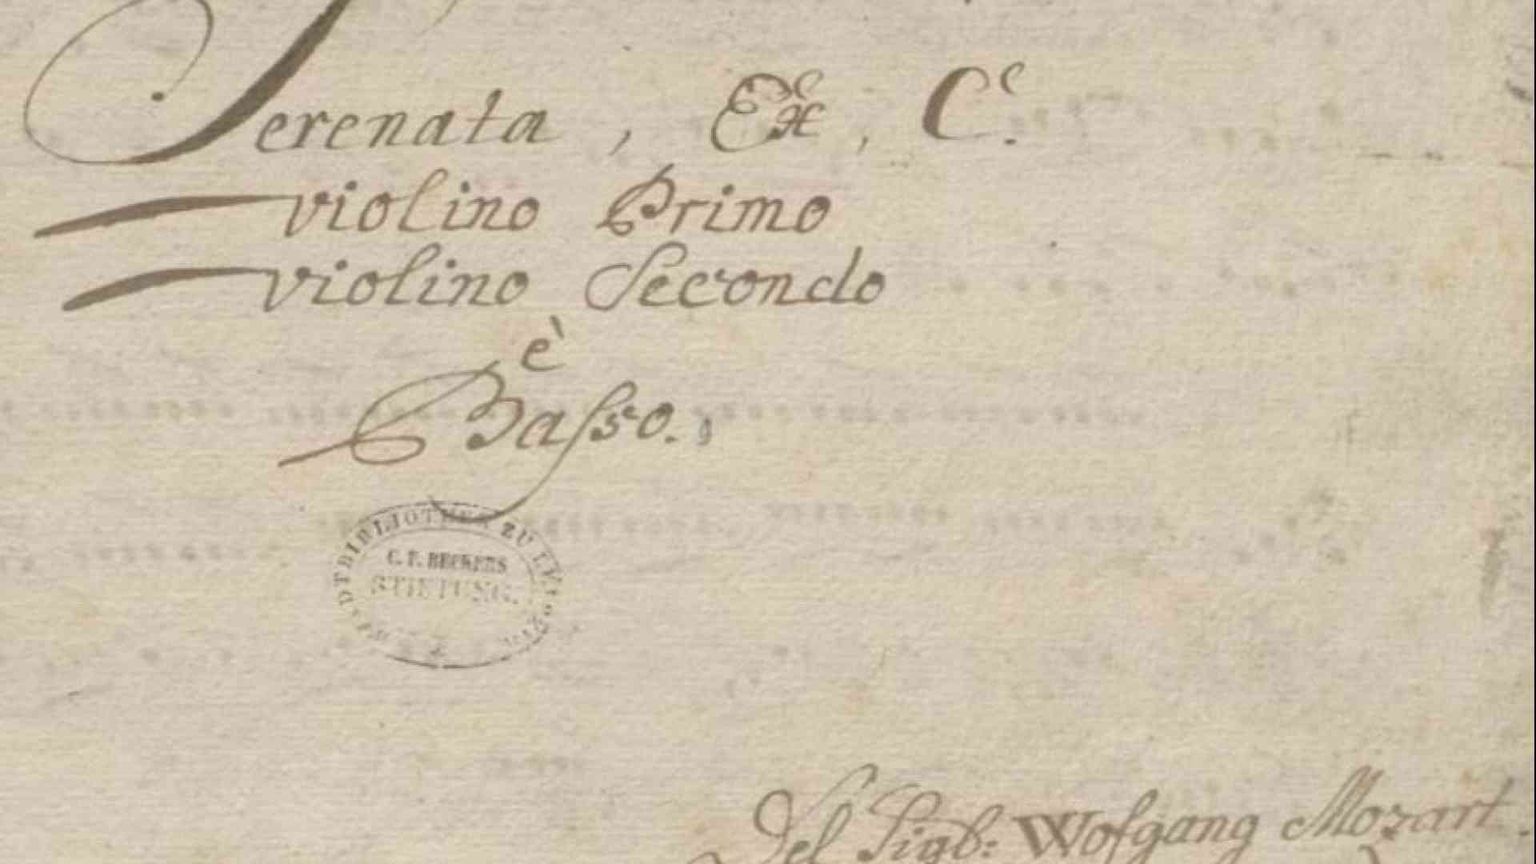 Serenata, Ex, C.
violino Primo
violino Secondo
è
Baſso.
STADTBIBLIOTHEK ZU LEIPZIG
C. F. BECKERS
STIFTUNG.
Del Sigb: Wolfgang Mozart.